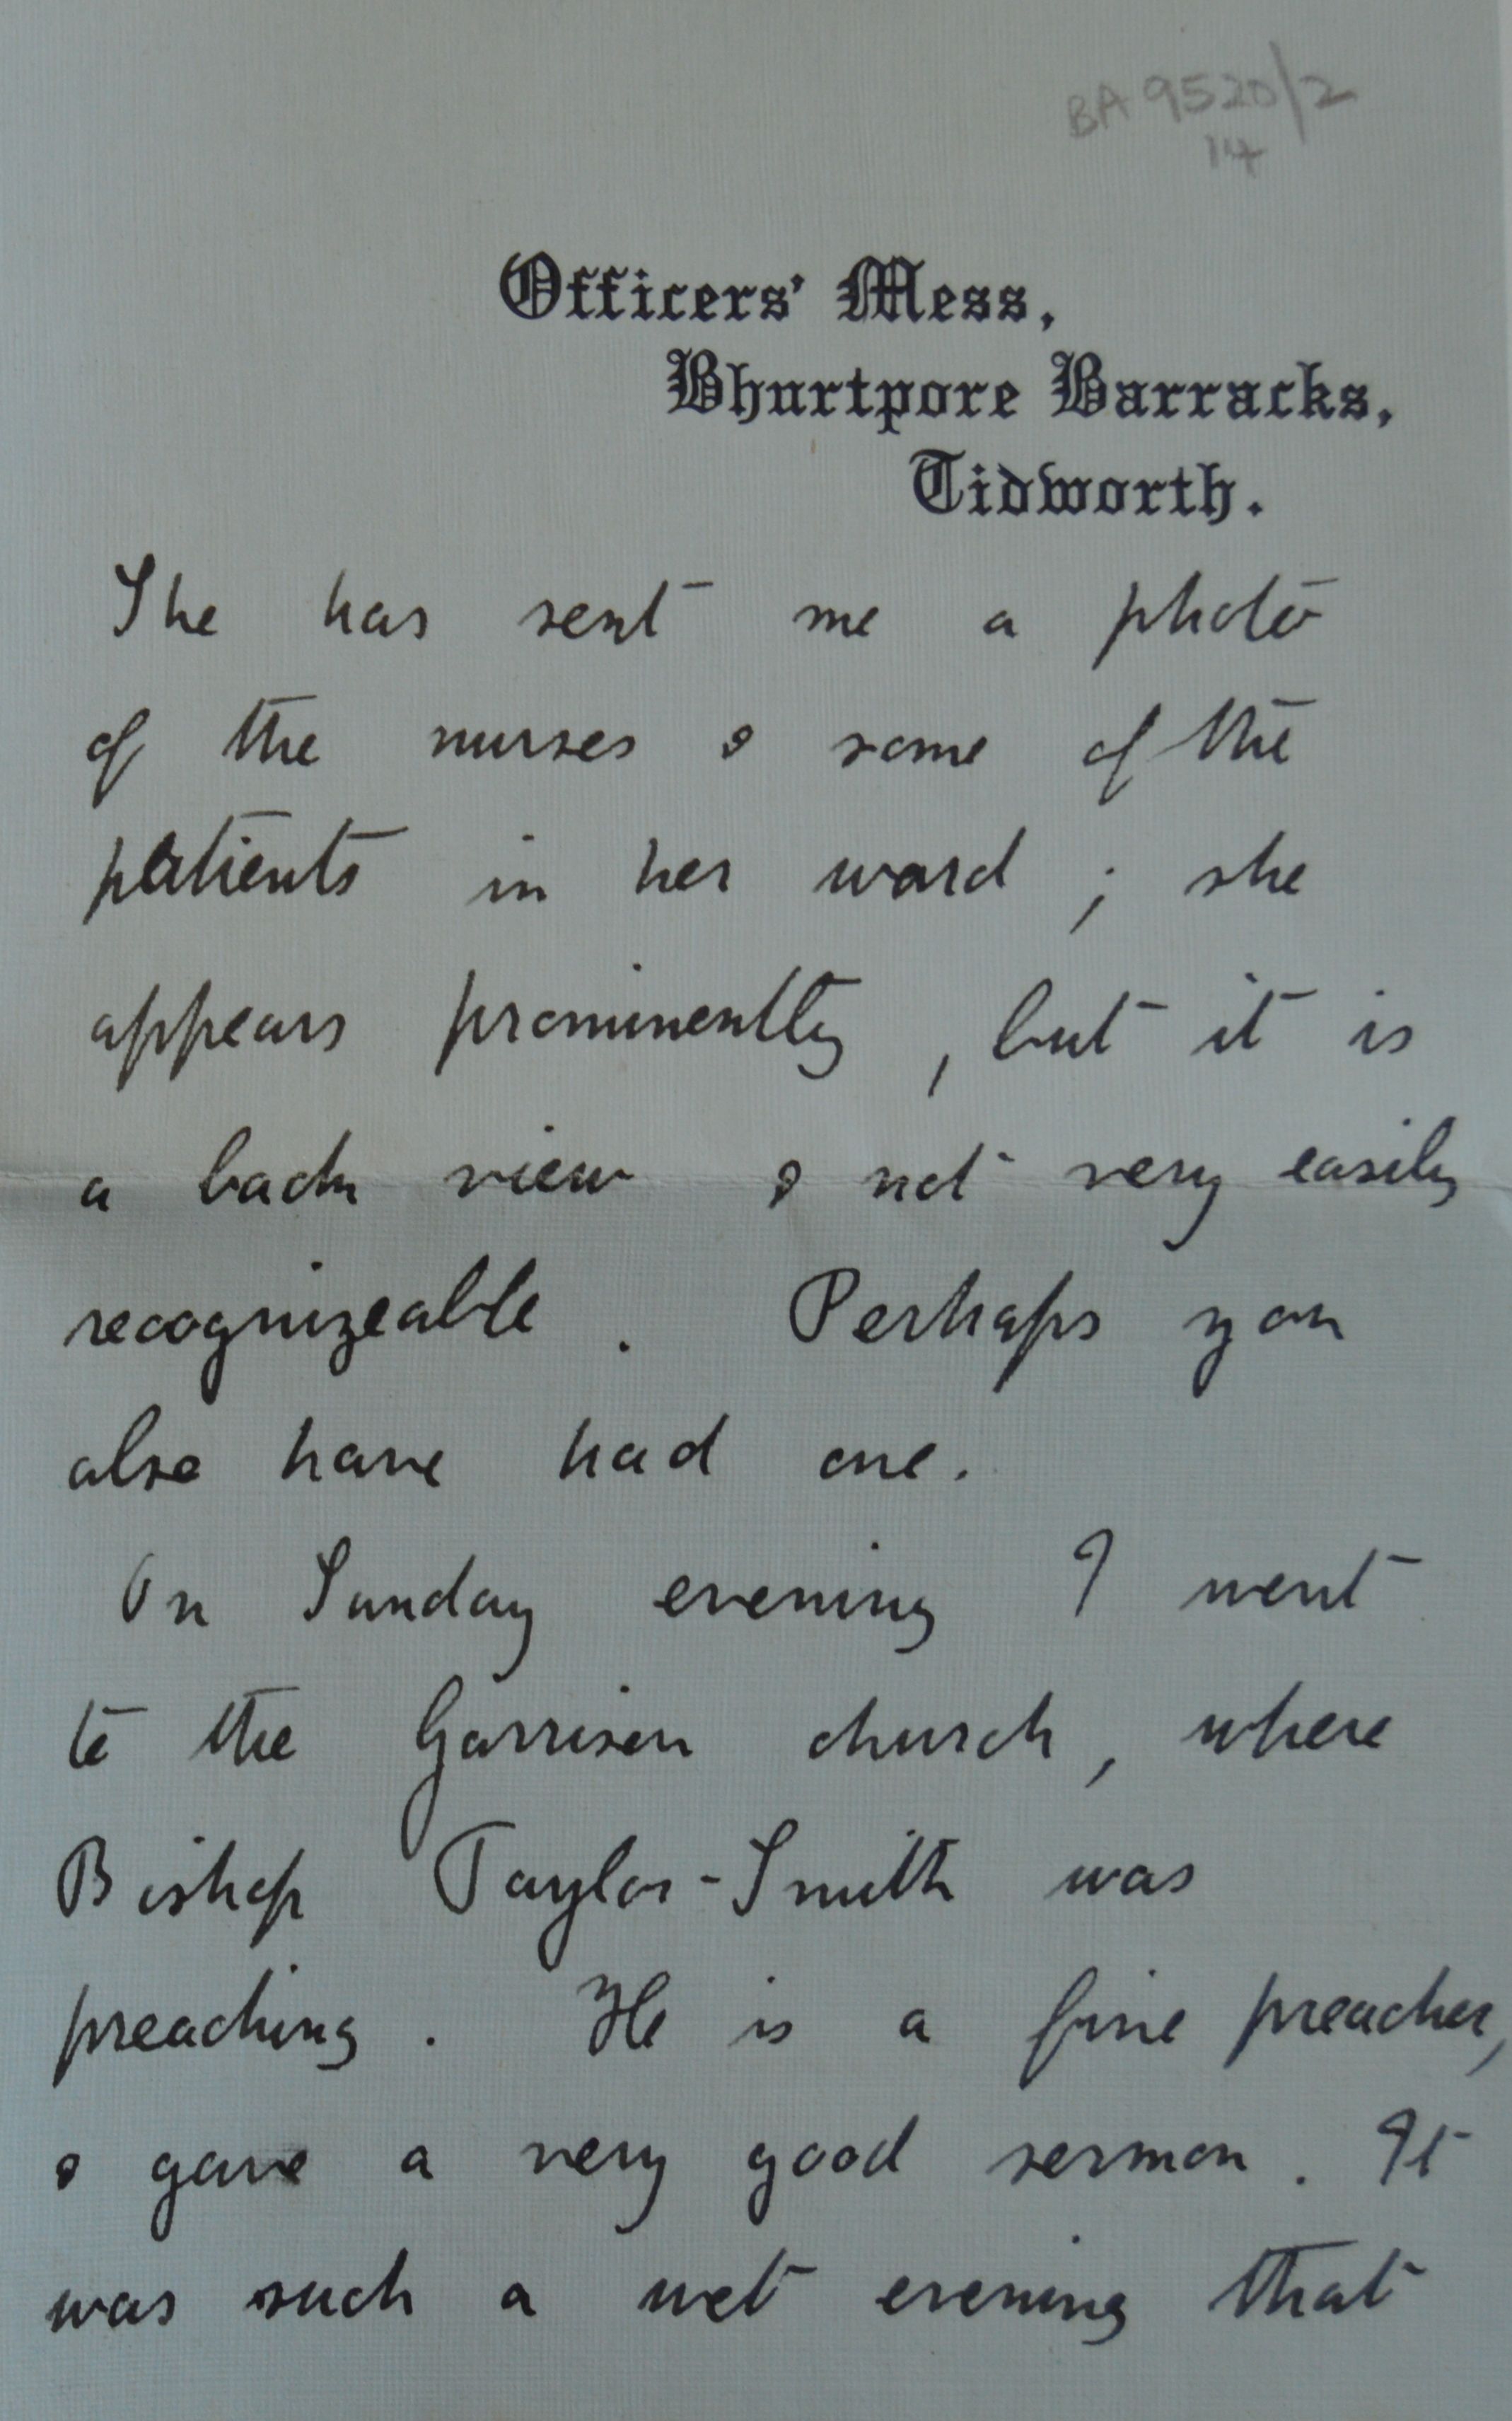 BA 9520/2
14
Officers' Mess,
Bhurtpore Barracks,
Tidworth.
She has sent me a photo
of the nurses & some of the
patients in her ward ; she
appears prominently , but it is
a back view & not very easily
recognizeable . Perhaps you
also have had one.
On Sunday evening I went
to the Garrison church , where
Bishop Taylor-Smith was
preaching . He is a fine preacher,
& gave a very good sermon . It
was such a wet evening that